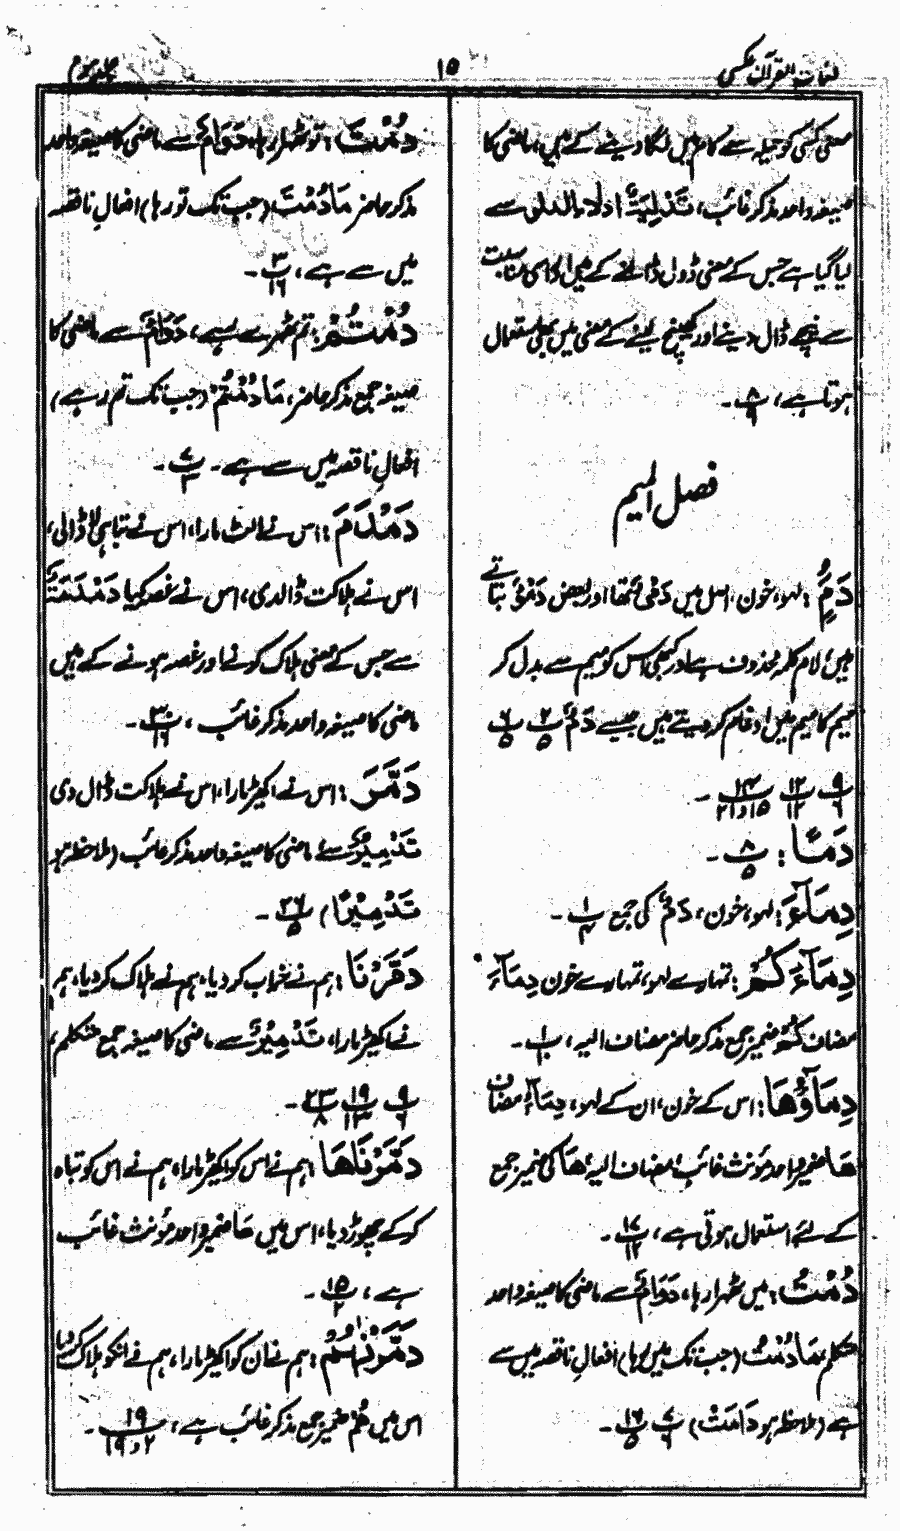 لغات القرآن عکسی
۱۵
جلد سوم
معنی کسی کو حیلہ سے کام میں لگا دینے کے ہیں، ماضی کا
صیغہ واحد مذکر غائب، تَدْلِیَۃٌ ادلاء بالدلو سے
لیا گیا ہے جس کے معنی ڈول ڈالنے کے ہیں اور اسی مناسبت
سے نیچے ڈال دینے اور کھینچ لینے کے معنی میں بھی استعمال
ہوتا ہے، پ ۸/۹ ۔
فصل المیم
دَمٌ : لہو، خون، اصل میں دَمْیٌ تھا اور بعض دَمَوٌ بتاتے
ہیں، لام کلمہ محذوف ہے اور کبھی اس کو میم سے بدل کر
میم کا میم میں ادغام کر دیتے ہیں جیسے دَمٌّ پ ۲/۵ پ ۶/۵
پ ۹/۶ پ ۱۲/۱۲ پ ۱۴/۱۵ و ۲۱ ۔
دَمًا : پ ۸/۵ ۔
دِمَآءَ : لہو، خون، دَمٌ کی جمع پ ۱/۴ ۔
دِمَآءَكُمْ : تمہارے لہو، تمہارے خون دِمَآءَ
مضاف كُمْ ضمیر جمع مذکر حاضر مضاف الیہ، پ ۱ ۔
دِمَآؤُهَا : اس کے خون، ان کے لہو، دِمَآءُ مضاف
هَا ضمیر واحد مؤنث غائب مضاف الیہ هَا کی ضمیر جمع
کے لئے استعمال ہوتی ہے، پ ۱۷/۱۲ ۔
دُمْتُ : میں ٹھہرا رہا، دَوَامٌ سے ماضی کا صیغہ واحد
متکلم مَا دُمْتُ (جب تک میں رہا) افعالِ ناقصہ میں سے
ہے (ملاحظہ ہو دَامَتْ) پ ۷/۶ پ ۱۶/۵ ۔
دُمْتَ : تو ٹھہرا رہا، دَوَامٌ سے ماضی کا صیغہ واحد
مذکر حاضر مَا دُمْتَ (جب تک تو رہا) افعالِ ناقصہ
میں سے ہے، پ ۳/۱۶ ۔
دُمْتُمْ : تم ٹھہرے رہے، دَوَامٌ سے ماضی کا
صیغہ جمع مذکر حاضر، مَا دُمْتُمْ (جب تک تم رہے)
افعالِ ناقصہ میں سے ہے ۔ پ ۷/۳ ۔
دَمْدَمَ : اس نے الٹ مارا، اس نے تباہی لا ڈالی،
اس نے ہلاکت ڈالدی، اس نے غصہ کیا دَمْدَمَۃٌ
سے جس کے معنی ہلاک کرنے اور غصہ ہونے کے ہیں
ماضی کا صیغہ واحد مذکر غائب ، پ ۳۰/۱۶ ۔
دَمَّرَ : اس نے اکھیڑ مارا، اس نے ہلاکت ڈال دی
تَدْمِیْرٌ سے ماضی کا صیغہ واحد مذکر غائب (ملاحظہ ہو
تَدْمِیْرًا) پ ۲۶/۵ ۔
دَمَّرْنَا : ہم نے خراب کر دیا، ہم نے ہلاک کر دیا، ہم
نے اکھیڑ مارا، تَدْمِیْرٌ سے ماضی کا صیغہ جمع متکلم،
پ ۹/۶ پ ۱۹/۱۳ پ ۲۳/۸ ۔
دَمَّرْنَاهَا : ہم نے اس کو اکھیڑ مارا، ہم نے اس کو تباہ
کر کے چھوڑ دیا، اس میں هَا ضمیر واحد مؤنث غائب
ہے ، پ ۱۵/۲ ۔
دَمَّرْنَاهُمْ : ہم نے ان کو اکھیڑ مارا، ہم نے انکو ہلاک کر دیا
اس میں هُمْ ضمیر جمع مذکر غائب ہے، پ ۱۹/۲ و ۱۹ ۔